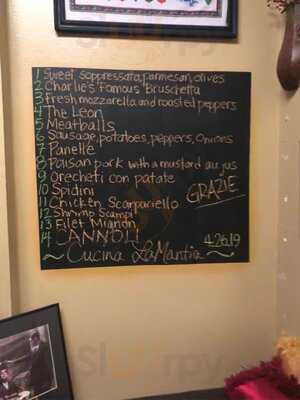 1 Sweet soppressata, parmesan, olives
2 Charlie's Famous Bruschetta
3 Fresh mozzarella and roasted peppers
4 The Leon
5 Meatballs
6 Sausage, potatoes, peppers, Onions
7 Panelle
8 Paisan pork with a mustard au jus
9 Orecheti con patate
10 Spidini
GRAZIE
11 Chicken Scarpariello
12 Shrimp Scampi
13 Filet Mignon
14 CANNOLI
4.26.19
~ Cucina LaMantia ~